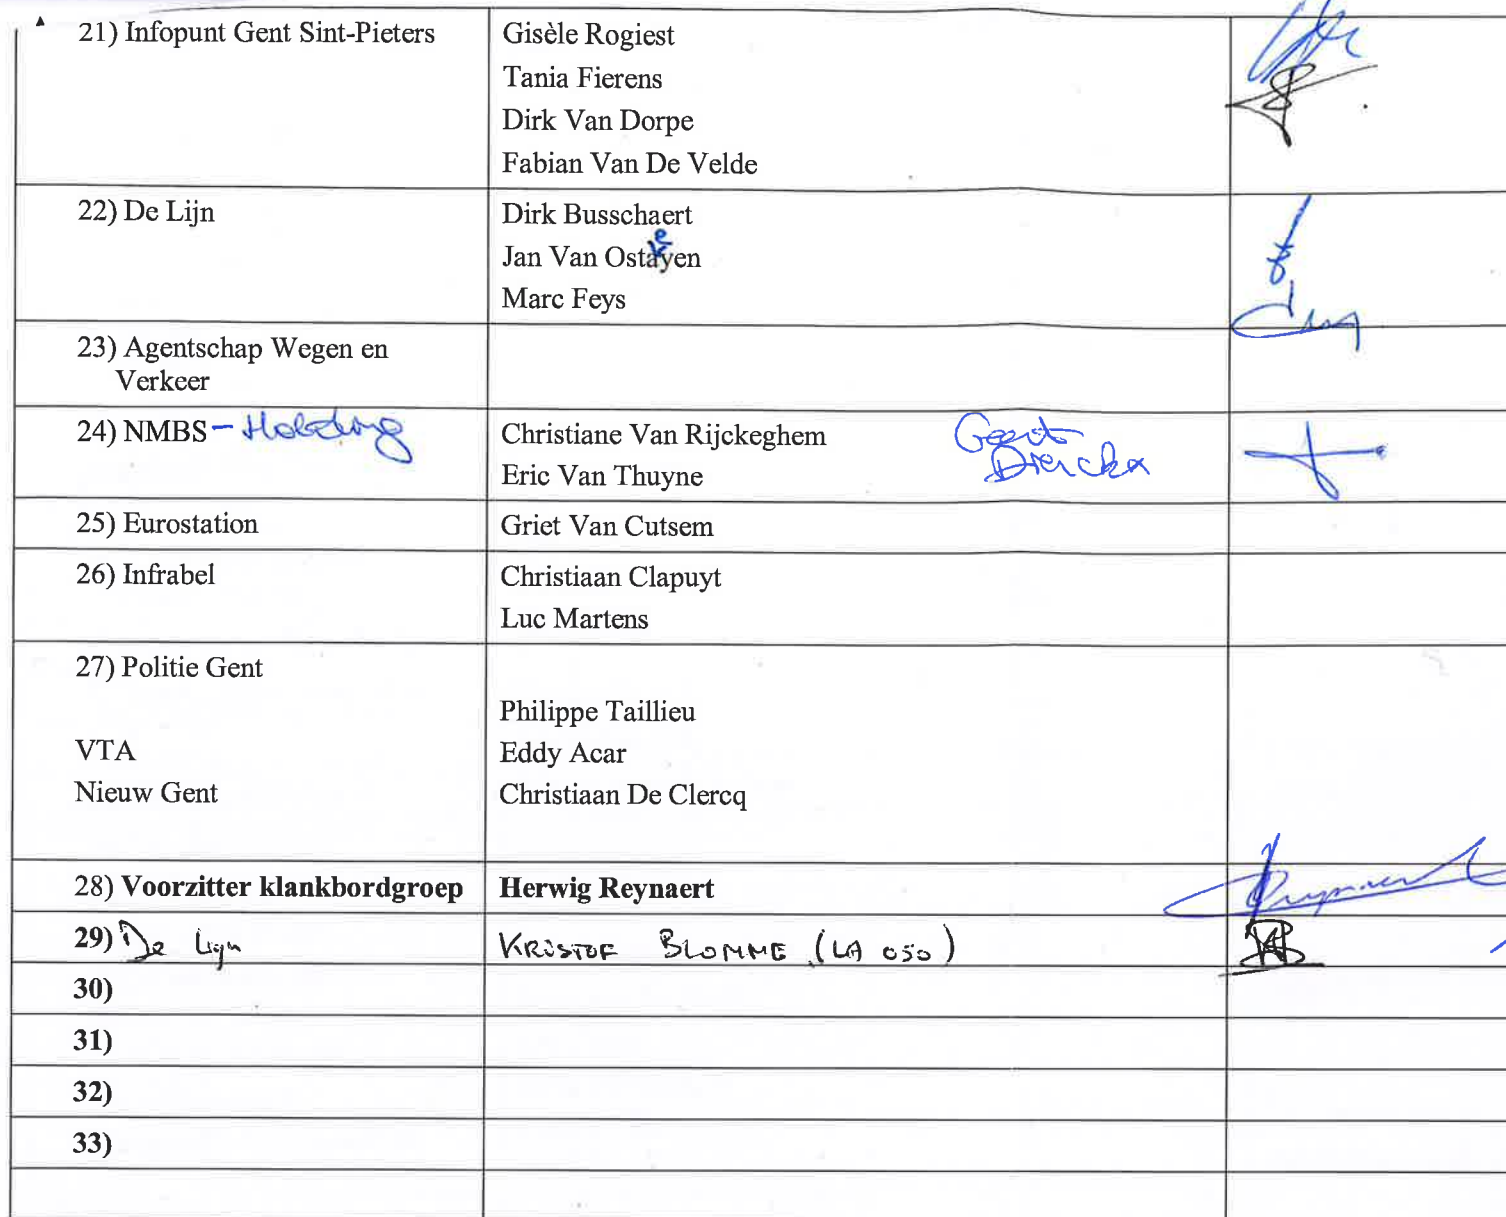 21) Infopunt Gent Sint-Pieters
Gisèle Rogiest
Tania Fierens
Dirk Van Dorpe
Fabian Van De Velde
22) De Lijn
Dirk Busschaert
Jan Van Ostaeyen
Marc Feys
23) Agentschap Wegen en
Verkeer
24) NMBS - Holding
Christiane Van Rijckeghem
Eric Van Thuyne
Geert
Dierckx
25) Eurostation
Griet Van Cutsem
26) Infrabel
Christiaan Clapuyt
Luc Martens
27) Politie Gent
Philippe Taillieu
VTA
Eddy Acar
Nieuw Gent
Christiaan De Clercq
28) Voorzitter klankbordgroep
Herwig Reynaert
29) De Lijn
KRISTOF BLOMME (LA 050)
30)
31)
32)
33)